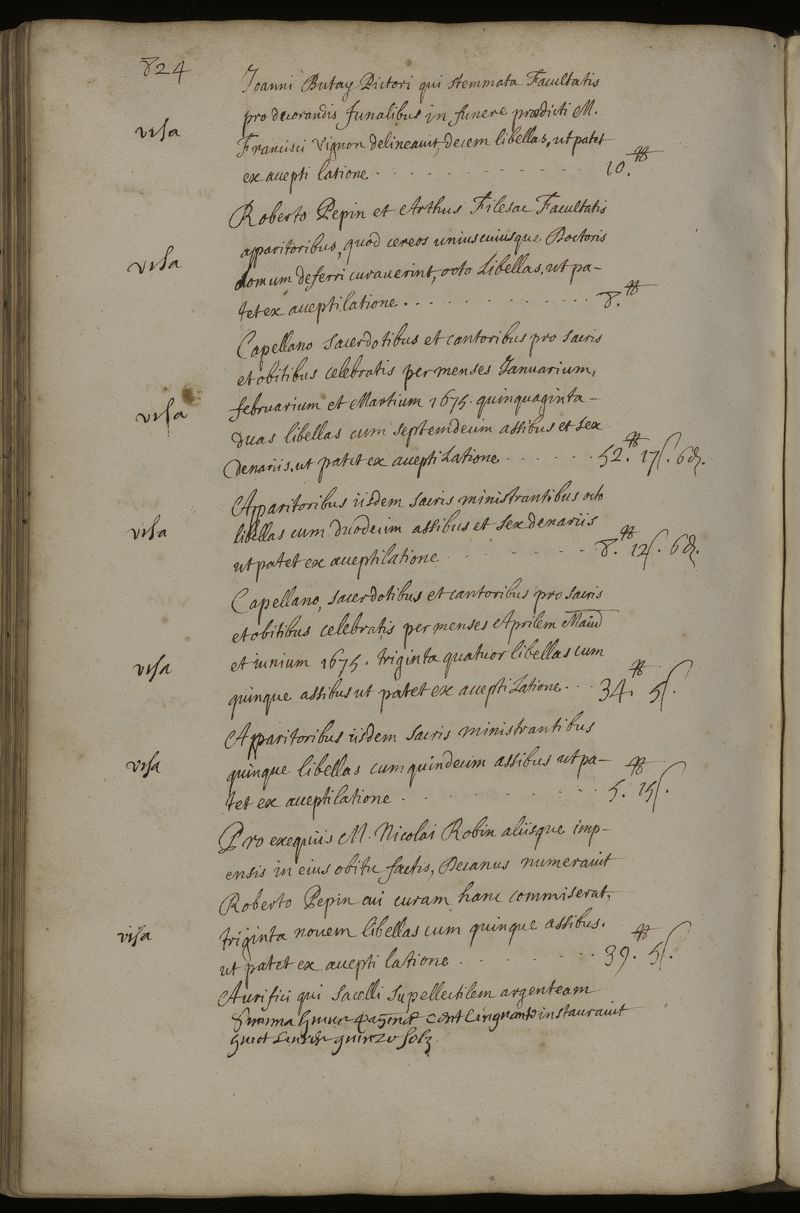 824
Joanni Butay Pictori qui stemmata Facultatis
pro decorandis funalibus in funere prædicti M.
visa
Francisci Vignon delineavit, decem libellas, ut patet
ex accepti latione . . . . . . . . . . . 10.₶
Roberto Pepin et Arthus Filesac Facultatis
apparitoribus, quod cereos uniuscuiusque Doctoris
visa
domum deferri curaverint, octo Libellas. ut pa-
tet ex acceptilatione . . . . . . . . . . . 8.₶
Capellano sacerdotibus et cantoribus pro sacris
et obitibus celebratis per menses Januarium,
visa
februarium et Martium 1675. quinquaginta-
duas libellas cum septemdecim assibus et sex
denariis. ut patet ex acceptilatione . . . . . . 52.₶ 17ſ. 6₰.
Apparitoribus iisdem sacris ministrantibus octo
visa
libellas cum duodecim assibus et sex denariis
ut patet ex acceptilatione . . . . . . . . 8.₶ 12ſ. 6₰.
Capellano, sacerdotibus et cantoribus pro sacris
et obitibus celebratis per menses Aprilem Maiũ
visa
et iunium 1675. triginta quatuor libellas cum
quinque assibus ut patet ex acceptilatione . . . 34.₶ 5ſ.
Apparitoribus iisdem sacris ministrantibus
visa
quinque libellas cum quindecim assibus ut pa-
tet ex acceptilatione . . . . . . . . . . 5.₶ 15ſ.
Pro exequiis M. Nicolai Robin aliisque imp-
ensis in eius obitu factis, Decanus numeravit
Roberto Pepin cui curam hanc commiserat,
visa
triginta novem libellas cum quinque assibus.
ut patet ex accepti latione . . . . . . . . 39.₶ 5ſ.
Aurifici qui sacelli supellectilem argenteam
instauravit
Summa huius paginæ cent Cinquante
huict Livres quinze solz